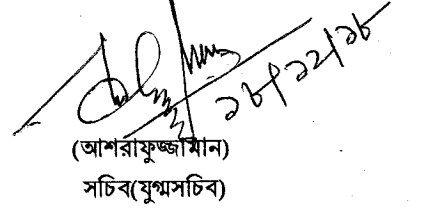 ১৮/১২/১৮
(আশরাফুজ্জামান)
সচিব(যুগ্মসচিব)